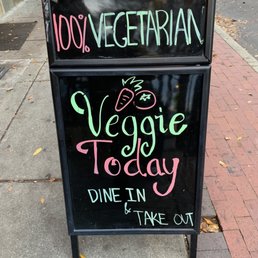 100% VEGETARIAN
Veggie
Today
DINE IN
&
TAKE OUT